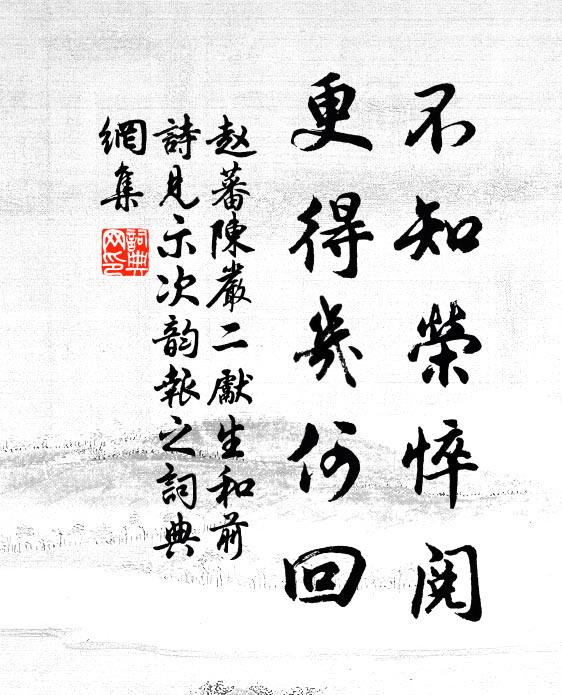 不知榮悴閱
更得幾何回
赵蕃陳巖二獻生和前
詩見示次韵報之詞典
網集
詞典
网印